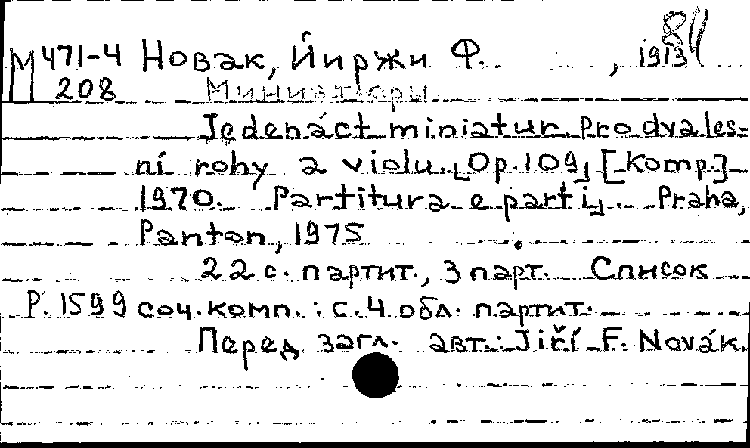 М 471-4 Новак, Йиржи Ф. , 1913 84
208 Миниатюры
Jedenáct miniatur pro dva les=
ní rohy a violu. Op. 109 [Komp.]
1970. Partitura e parti. Praha,
Panton, 1975
22 с. партит., 3 парт. Список
Р. 1599 соч. комп.: с. 4 обл. партит.
Перед загл. авт.: Jiří F. Novák.